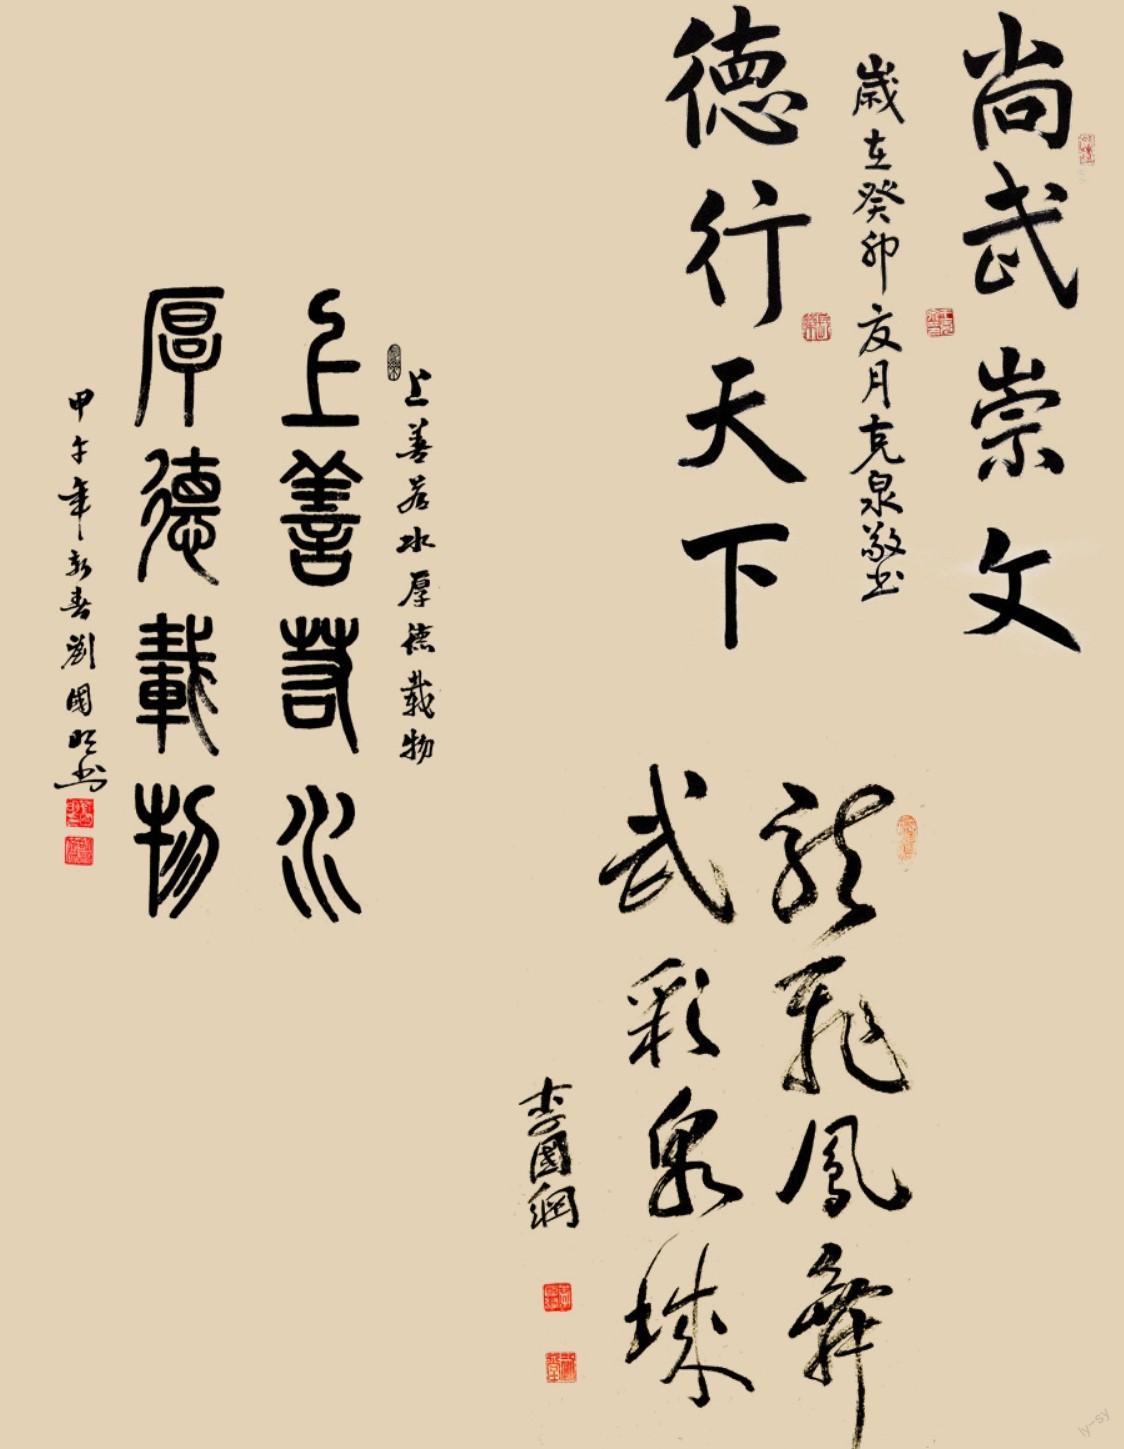 尚武崇文
德行天下
歲在癸卯友月克泉敬书
龍飛鳳舞
武彩泉城
李國綱
上善若水厚德载物
上善若水
厚德載物
甲午年新春劉國明書
ly-sy